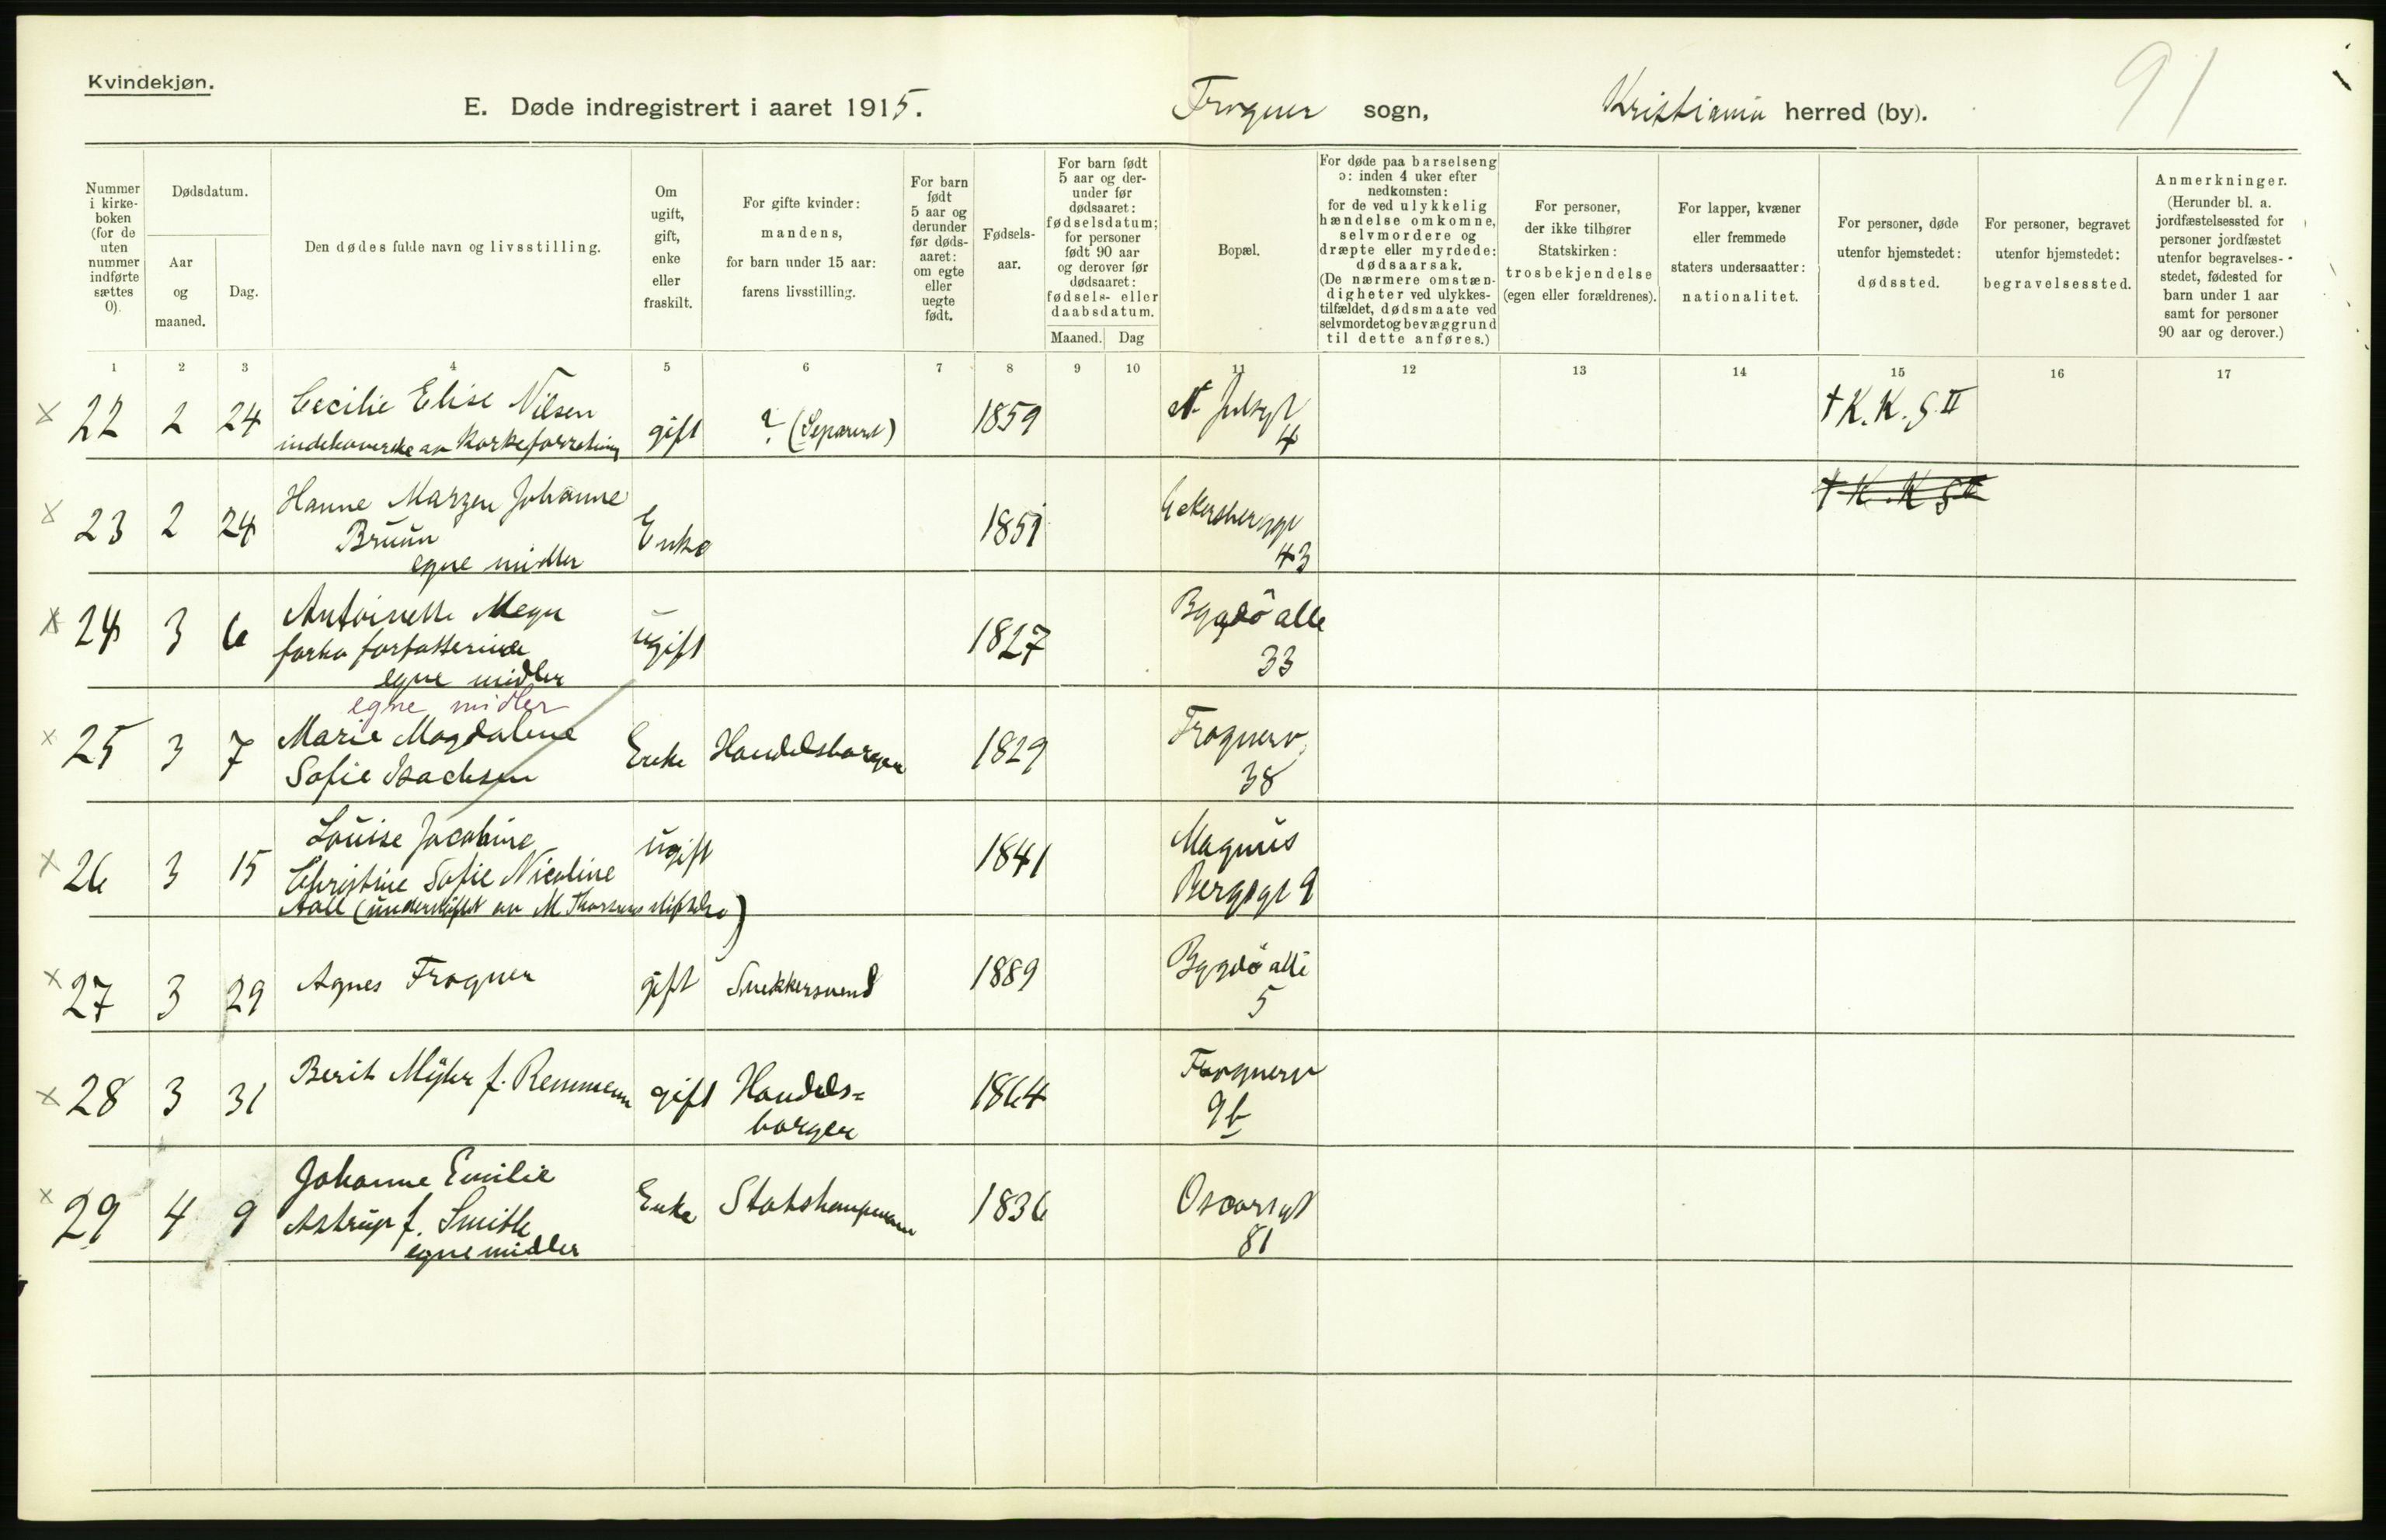 Kvindekjøn.
91
E. Døde indregistrert i aaret 1915. Frogner sogn, Kristiania herred (by).
Nummer i kirkeboken (for de uten nummer indførte sættes 0).
Dødsdatum.
Aar og maaned.
Dag.
Den dødes fulde navn og livsstilling.
Om ugift, gift, enke eller fraskilt.
For gifte kvinder: mandens, for barn under 15 aar: farens livsstilling.
For barn født 5 aar og derunder før dødsaaret: om egte eller uegte født.
Fødselsaar.
For barn født 5 aar og derunder før dødsaaret: fødselsdatum; for personer født 90 aar og derover før dødsaaret: fødsels- eller daabsdatum.
Maaned.
Dag
Bopæl.
For døde paa barselseng ɔ: inden 4 uker efter nedkomsten: for de ved ulykkelig hændelse omkomne, selvmordere og dræpte eller myrdede: dødsaarsak. (De nærmere omstændigheter ved ulykkestilfældet, dødsmaate ved selvmordet og bevæggrund til dette anføres.)
For personer, der ikke tilhører Statskirken: trosbekjendelse (egen eller forældrenes).
For lapper, kvæner eller fremmede staters undersaatter: nationalitet.
For personer, døde utenfor hjemstedet: dødssted.
For personer, begravet utenfor hjemstedet: begravelsessted.
Anmerkninger. (Herunder bl. a. jordfæstelsessted for personer jordfæstet utenfor begravelsesstedet, fødested for barn under 1 aar samt for personer 90 aar og derover.)
1 2 3 4 5 6 7 8 9 10 11 12 13 14 15 16 17
x 22 2 24 Cecilie Elise Nilsen gift ? (Separeret) 1859 4 † K. K. S II
indehaverske av
x 23 2 24 Hanne Johanne Enke 1851 Eckersberggt 43 † K. K S II
Bruun
egne midler
x 24 3 6 Antoinette Meyn ugift 1827 Bygdö alle 33
forhv forfatterinde
egne midler
egne midler
x 25 3 7 Marie Magdalene Enke Handelsborger 1829 Frognerv. 38
Sofie Isachsen
x 26 3 15 Louise Jacobine ugift 1841 Magnus
Christine Sofie Nicoline Bergsgt 9
Aall (understøttet av M Thorsens stiftelse)
x 27 3 29 Agnes Frogner gift Snekkersvend 1889 Bygdö alle 5
x 28 3 31 Berit Myhr f. Remmem gift Handels= 1864 Frognerv
borger 9 b
x 29 4 9 Johanne Emilie Enke 1836 Oscarsgt 81
Astrup f. Smith
egne midler